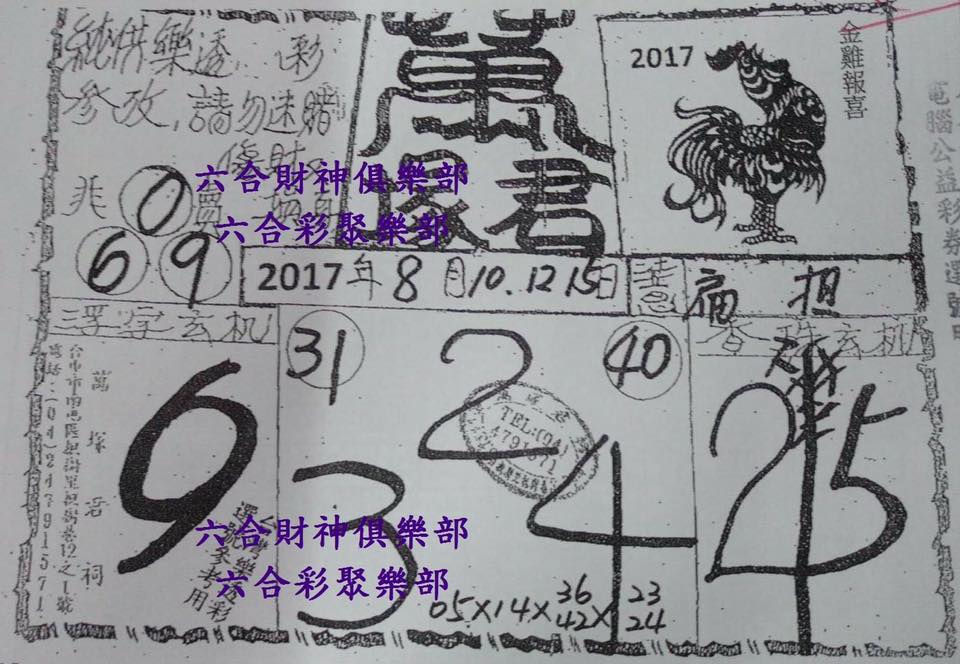 純供樂透彩
參改,請勿迷賭
傷財
兆 0
6 9
萬
塚君
2017
金雞報喜
電腦公益彩券選號
六合財神俱樂部
六合彩聚樂部
2017年8月10.12 15日
扁担
浮字玄机
玄机
31
40
9
2
3
4
25
萬塚君祠
台中市南屯區
電話:(04)24791571
TEL:(04)
選號參考用
六合財神俱樂部
六合彩聚樂部
05×14×36 42×23 24